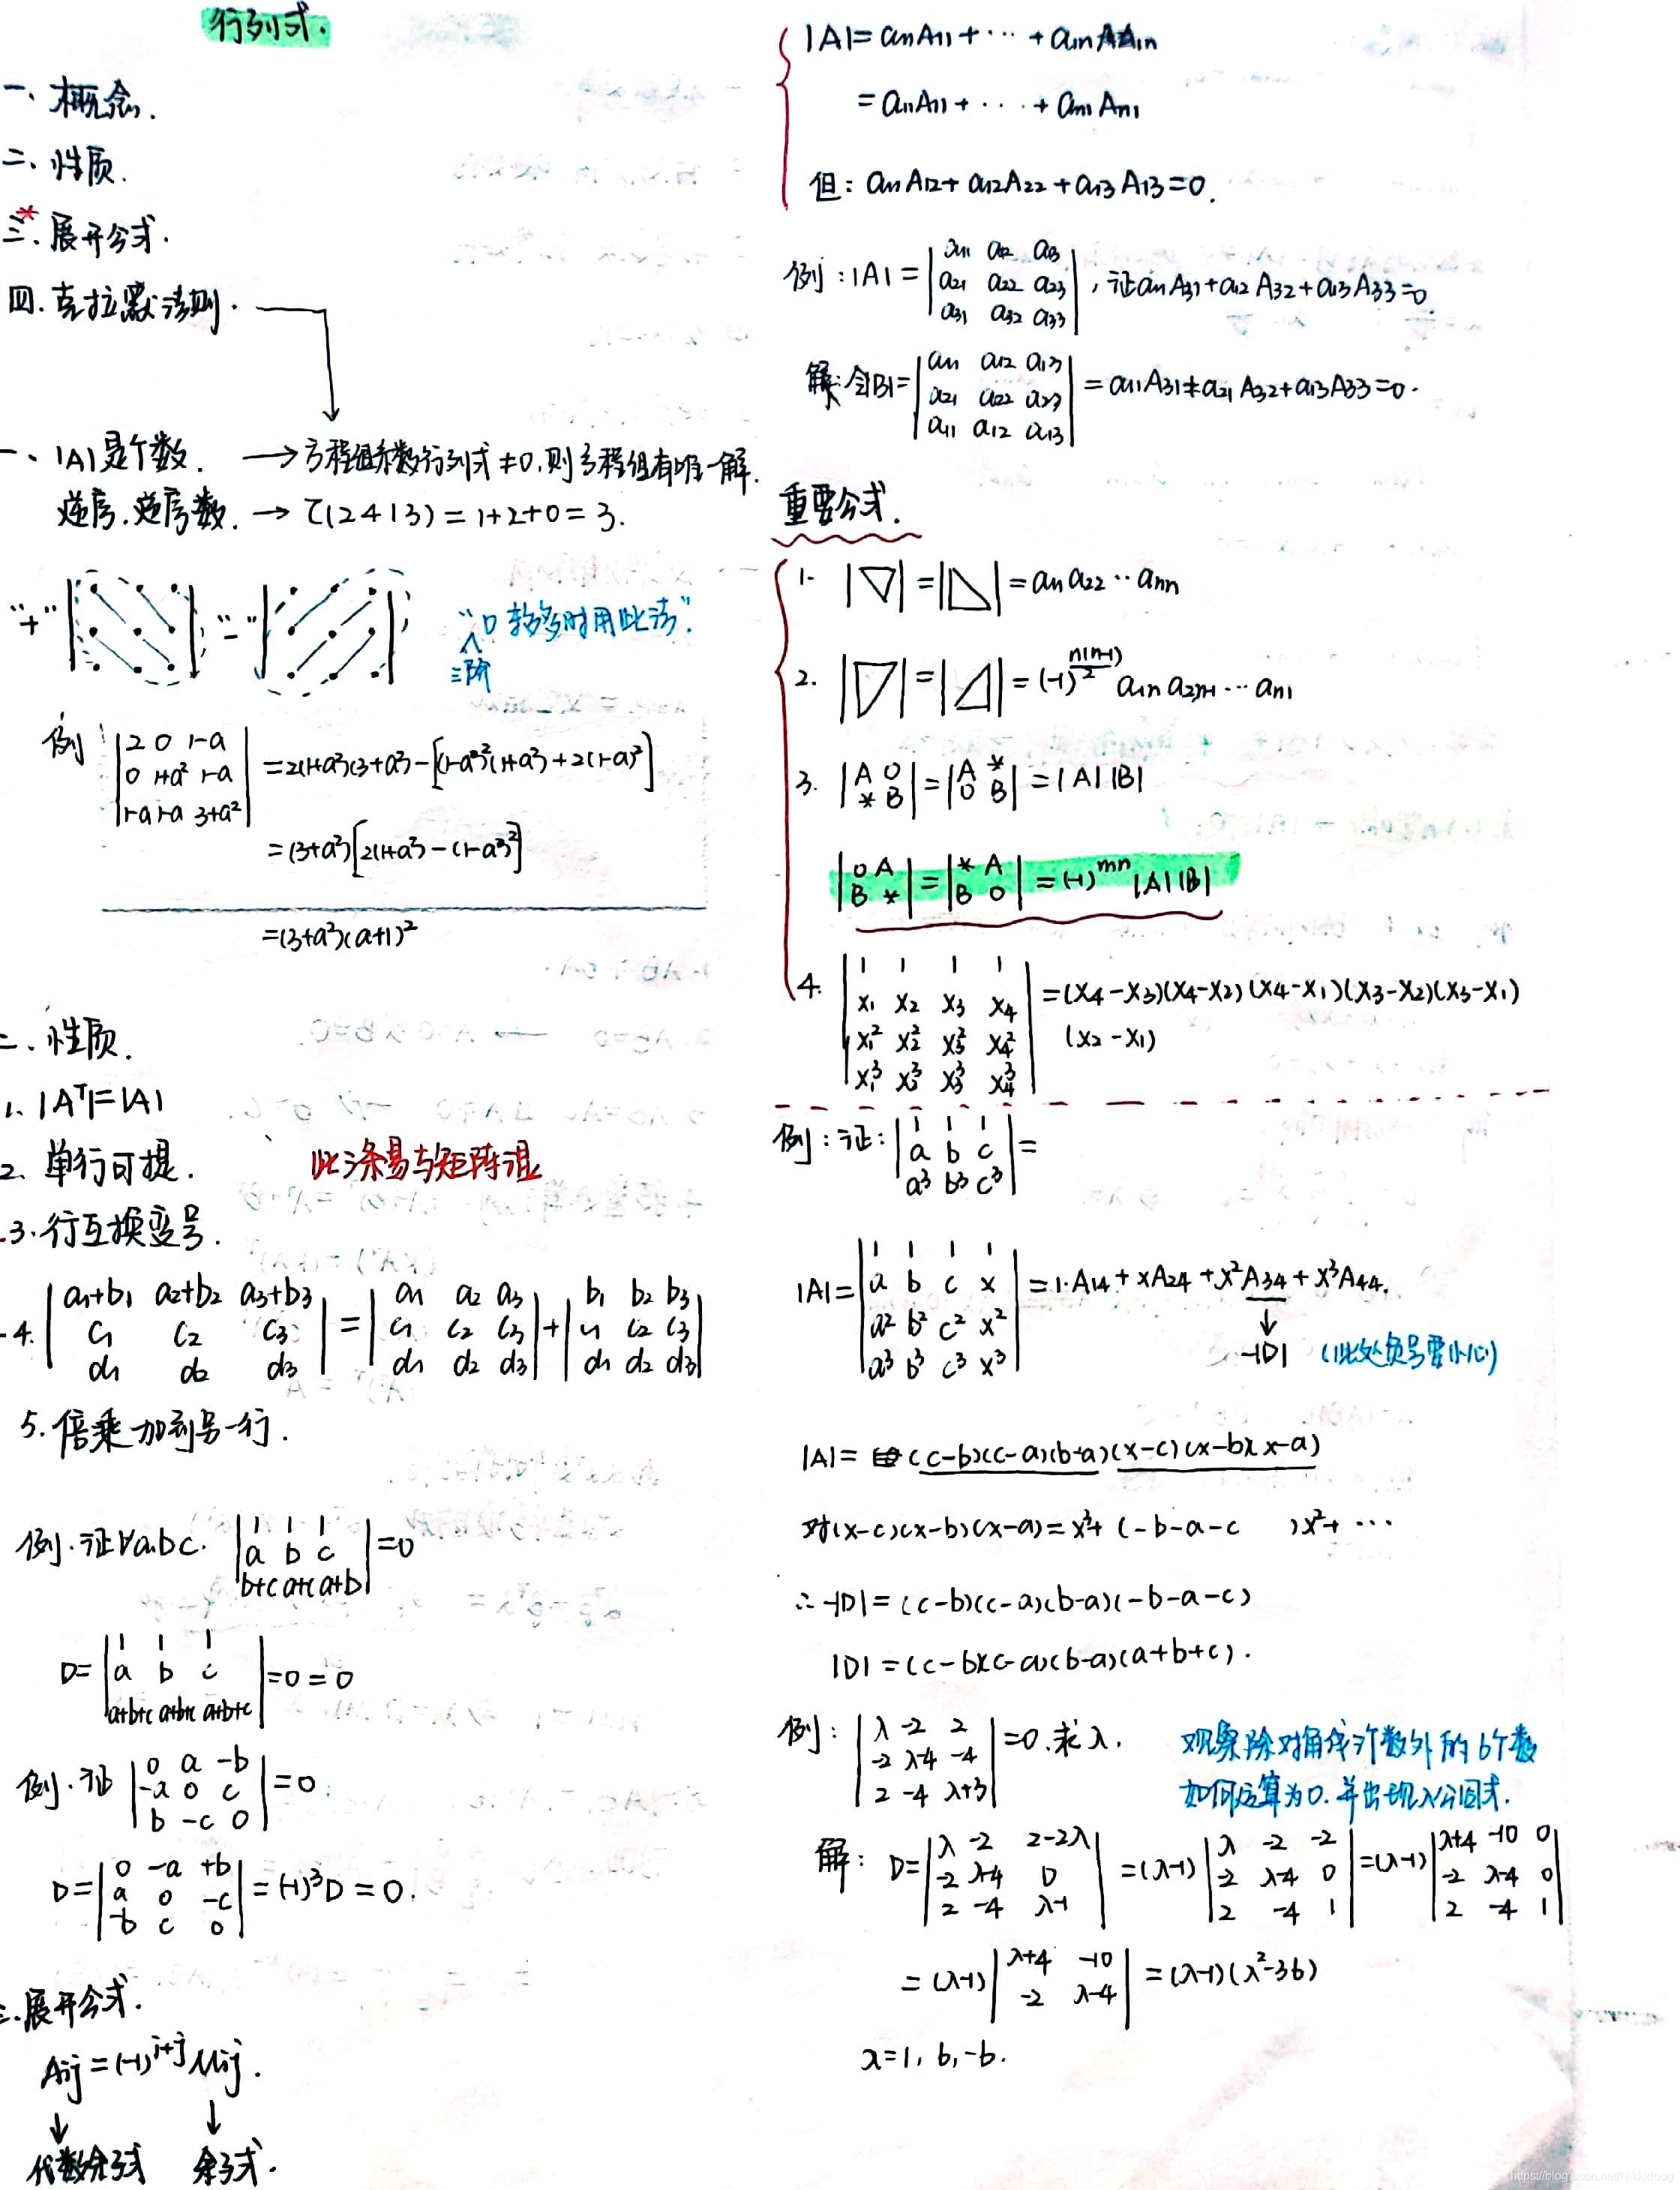 行列式.
一、概念.
二、性质.
*三、展开公式.
四.克拉默法则.
一、|A|是个数. → 方程组系数行列式≠0,则方程组有唯一解.
逆序.逆序数. → τ(2413)=1+2+0=3.
"+" "-" "0较多时用此法".
三阶
例 |2 0 1-a; 0 1+a² 1-a; 1-a 1-a 3+a²| =2(1+a²)(3+a²)-[(1-a²)²(1+a²)+2(1-a)²]
=(3+a²)[2(1+a²)-(1-a²)²]
=(3+a²)(a+1)²
二、性质.
1. |Aᵀ|=|A|
2. 单行可提. 此3条易与矩阵混
3.行互换变号.
4. |a₁+b₁ a₂+b₂ a₃+b₃; c₁ c₂ c₃; d₁ d₂ d₃| = |a₁ a₂ a₃; c₁ c₂ c₃; d₁ d₂ d₃| + |b₁ b₂ b₃; c₁ c₂ c₃; d₁ d₂ d₃|
5.倍乘加到另一行.
例.证∀a.b.c. |1 1 1; a b c; b+c a+c a+b| =0
D= |1 1 1; a b c; a+b+c a+b+c a+b+c| =0=0
例.证 |0 a -b; -a 0 c; b -c 0| =0
D= |0 -a +b; a 0 -c; -b c 0| =(-1)³D=0.
三.展开公式.
Aij=(-1)^i+j Mij.
↓ ↓
代数余子式 余子式.
|A|=a₁₁A₁₁+···+a₁ₙA₁ₙ
=a₁₁A₁₁+····+aₙ₁Aₙ₁
但: a₁₁A₁₂+a₁₂A₂₂+a₁₃A₁₃=0.
例: |A|= |a₁₁ a₁₂ a₁₃; a₂₁ a₂₂ a₂₃; a₃₁ a₃₂ a₃₃| ,证a₁₁A₃₁+a₁₂A₃₂+a₁₃A₃₃=0
解:令|B|= |a₁₁ a₁₂ a₁₃; a₂₁ a₂₂ a₂₃; a₁₁ a₁₂ a₁₃| =a₁₁A₃₁+a₂₁A₃₂+a₁₃A₃₃=0.
重要公式.
1. |▽|=|◺|=a₁₁a₂₂··aₙₙ
2. |▽|=|◿|=(-1)^n(n-1)/2 a₁ₙa₂ₙ₋₁···aₙ₁
3. |A 0; * B| = |A *; 0 B| =|A||B|
|0 A; B *| = |* A; B 0| =(-1)^mn |A||B|
4. |1 1 1 1; x₁ x₂ x₃ x₄; x₁² x₂² x₃² x₄²; x₁³ x₂³ x₃³ x₄³| =(x₄-x₃)(x₄-x₂)(x₄-x₁)(x₃-x₂)(x₃-x₁)
(x₂-x₁)
例:证: |1 1 1; a b c; a³ b³ c³| =
|A|= |1 1 1 1; a b c x; a² b² c² x²; a³ b³ c³ x³| =1·A₁₄+xA₂₄+x²A₃₄+x³A₄₄.
↓
-|D| (此处负号要小心)
|A|= (c-b)(c-a)(b-a)(x-c)(x-b)(x-a)
对(x-c)(x-b)(x-a)=x³+(-b-a-c )x²+···
∴-|D|=(c-b)(c-a)(b-a)(-b-a-c)
|D|=(c-b)(c-a)(b-a)(a+b+c).
例: |λ -2 2; -2 λ-4 -4; 2 -4 λ+3| =0.求λ. 观察除对角线3个数外的6个数
如何运算为0.并出现λ公因式.
解: D= |λ -2 2-2λ; -2 λ-4 0; 2 -4 λ-1| =(λ-1) |λ -2 -2; -2 λ-4 0; 2 -4 1| =(λ-1) |λ+4 -10 0; -2 λ-4 0; 2 -4 1|
=(λ-1) |λ+4 -10; -2 λ-4| =(λ-1)(λ²-36)
λ=1, 6,-6.
https://blog.csdn.net/Nikkidoog